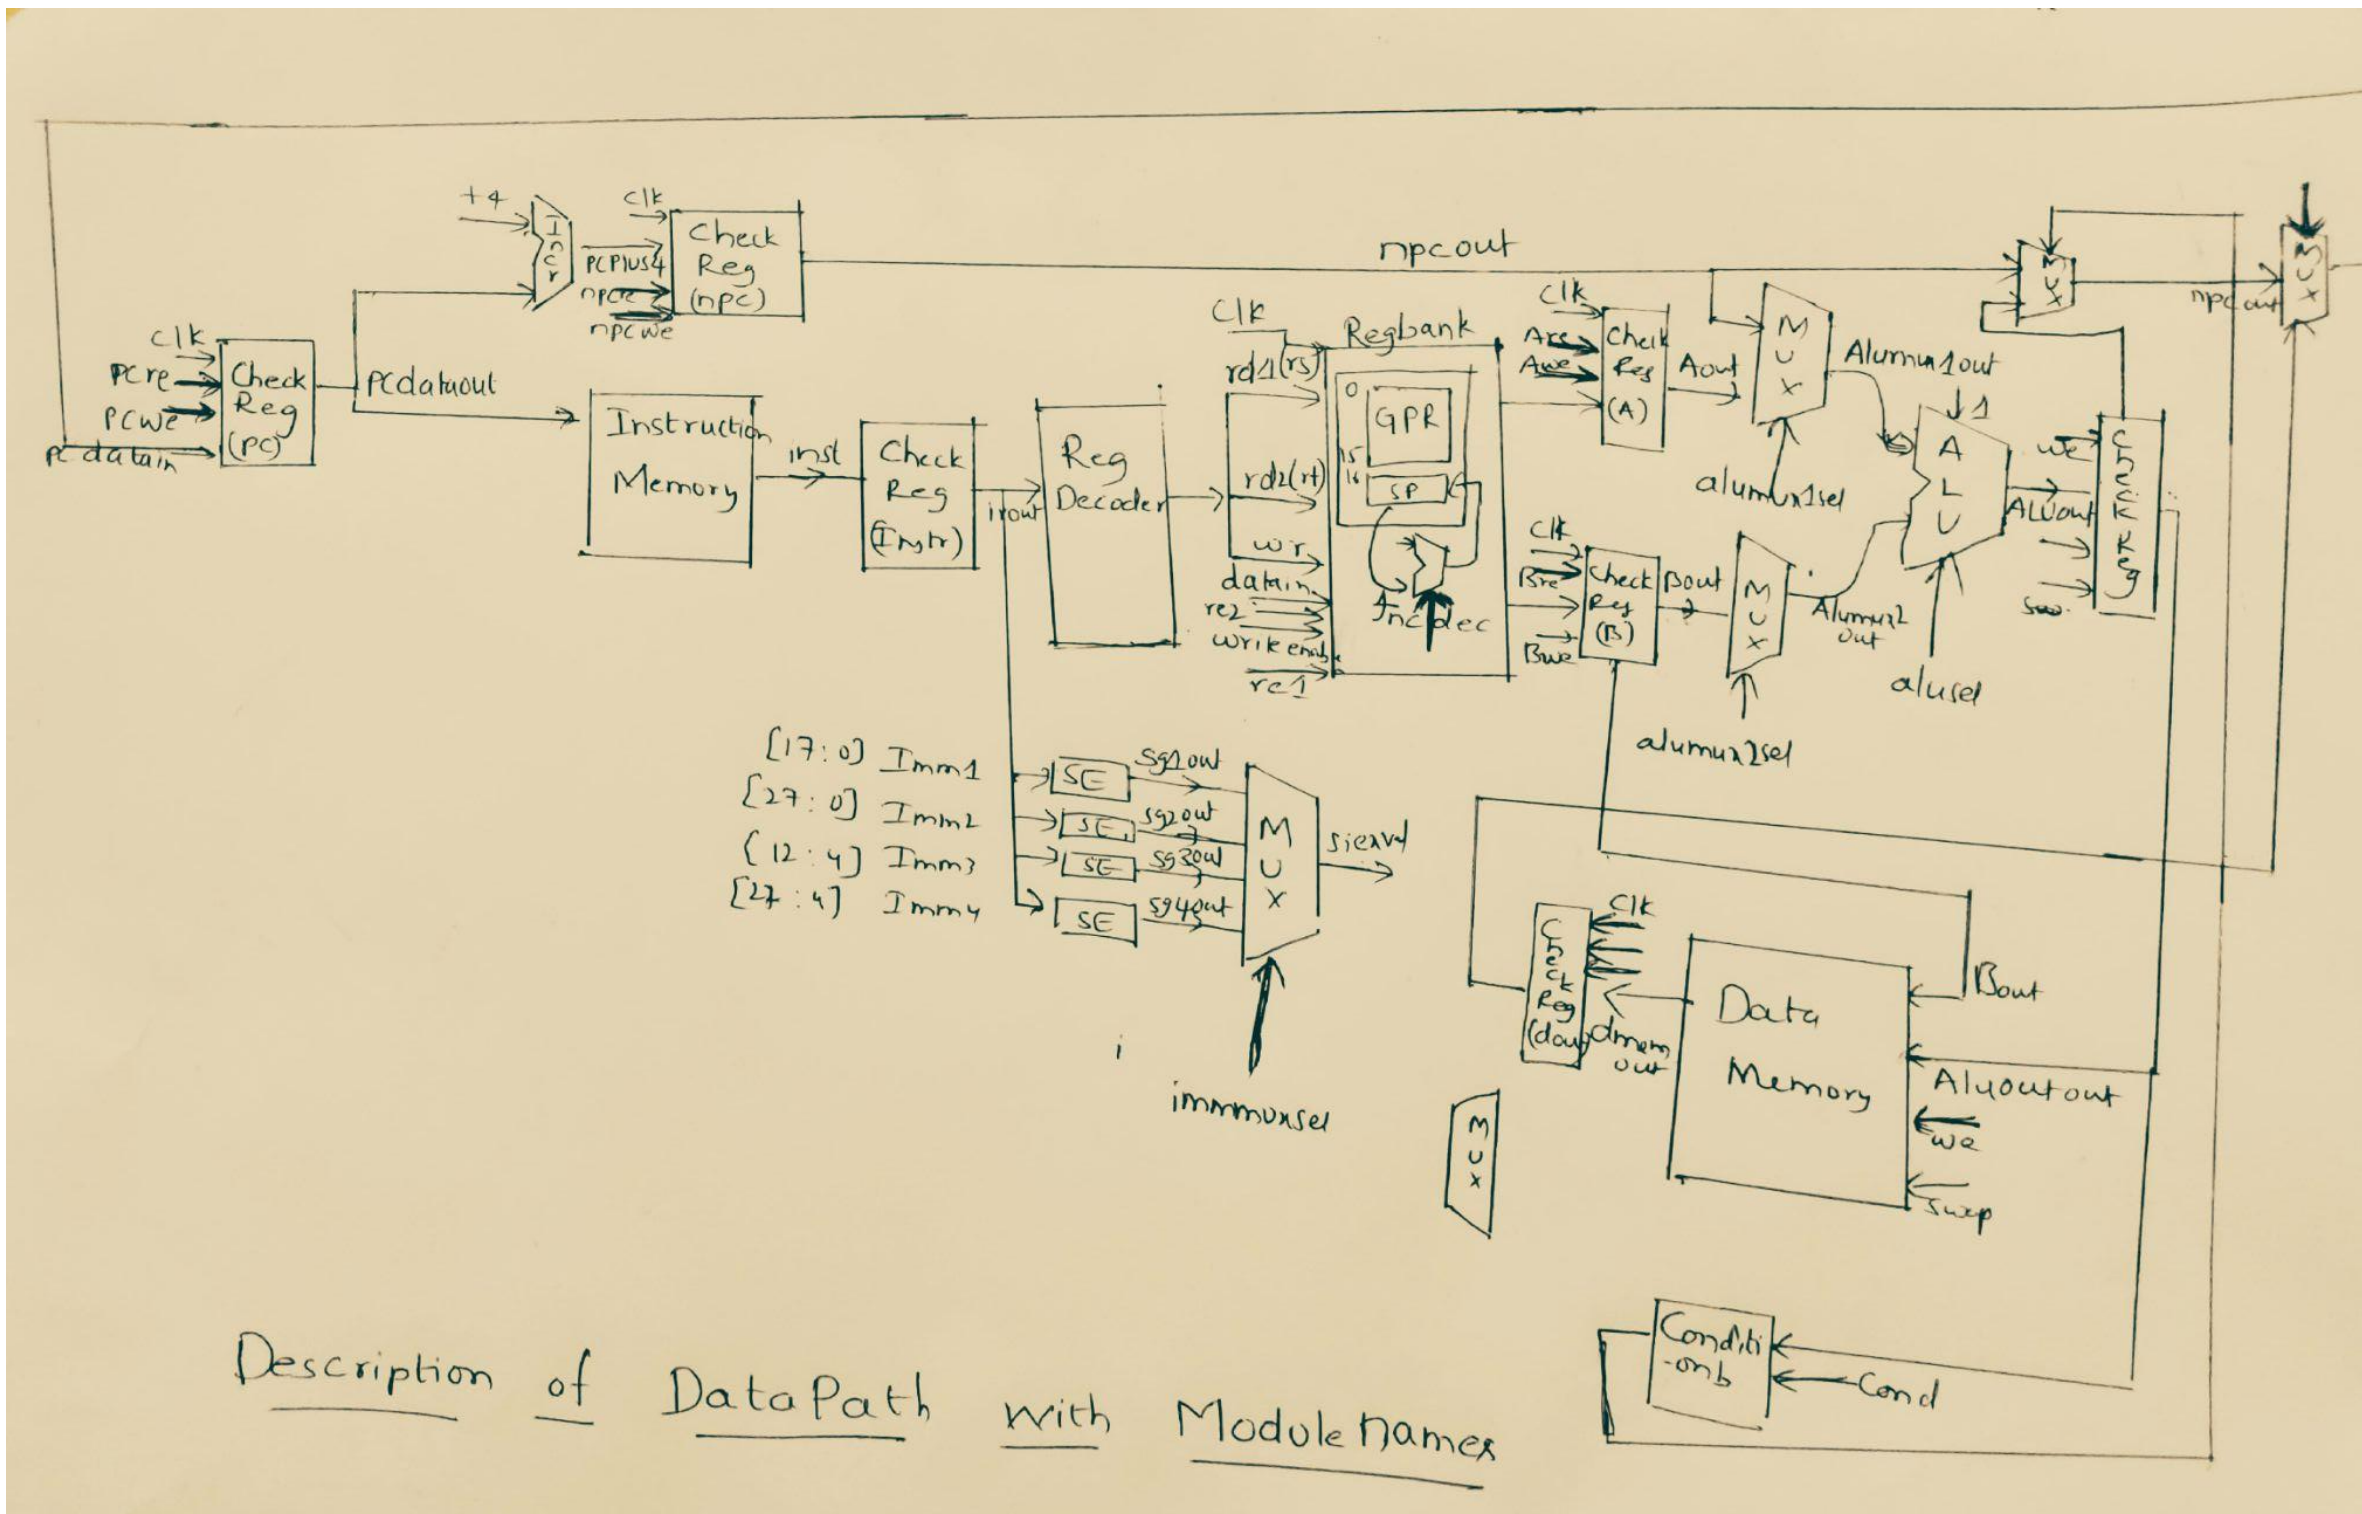 +4
Incr
clk
PCPlus4
npcre
npcwe
Check
Reg
(npc)
npcout
clk
PCre
PCwe
PCdatain
Check
Reg
(PC)
PCdataout
Instruction
Memory
inst
Check
Reg
(Instr)
irout
Reg
Decoder
Clk
rd1(rs)
rd2(rt)
wr
datain
re2
write enab
re1
Regbank
0
GPR
15
16
SP
Inc dec
Clk
Are
Awe
Check
Reg
(A)
Aout
MUX
Alumux1out
alumux1sel
Clk
Bre
Bwe
Check
Reg
(B)
Bout
MUX
Alumux2
out
alumux2sel
1
ALU
alusel
we
ALUout
Check Reg
MUX
npcout
MUX
[17:0] Imm1
[27:0] Imm2
[12:4] Imm3
[27:4] Imm4
SE
SE
SE
SE
sg1out
sg2out
sg3out
sg4out
MUX
immmuxsel
Check Reg
(dout)
Clk
dmem
out
Data
Memory
Bout
Aluoutout
we
swap
MUX
Conditi
-onb
Cond
Description of DataPath with Module names